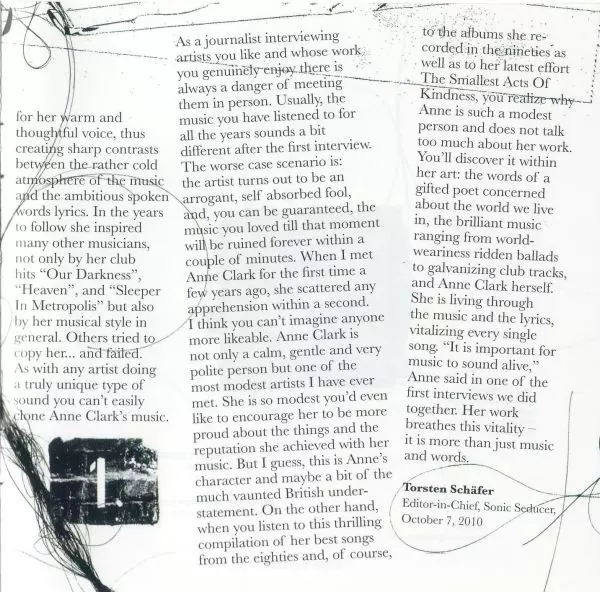 for her warm and
thoughtful voice, thus
creating sharp contrasts
between the rather cold
atmosphere of the music
and the ambitious spoken
words lyrics. In the years
to follow she inspired
many other musicians,
not only by her club
hits “Our Darkness”,
“Heaven”, and “Sleeper
In Metropolis” but also
by her musical style in
general. Others tried to
copy her... and failed.
As with any artist doing
a truly unique type of
sound you can’t easily
clone Anne Clark’s music.
As a journalist interviewing
artists you like and whose work
you genuinely enjoy there is
always a danger of meeting
them in person. Usually, the
music you have listened to for
all the years sounds a bit
different after the first interview.
The worse case scenario is:
the artist turns out to be an
arrogant, self absorbed fool,
and, you can be guaranteed, the
music you loved till that moment
will be ruined forever within a
couple of minutes. When I met
Anne Clark for the first time a
few years ago, she scattered any
apprehension within a second.
I think you can’t imagine anyone
more likeable. Anne Clark is
not only a calm, gentle and very
polite person but one of the
most modest artists I have ever
met. She is so modest you’d even
like to encourage her to be more
proud about the things and the
reputation she achieved with her
music. But I guess, this is Anne’s
character and maybe a bit of the
much vaunted British under-
statement. On the other hand,
when you listen to this thrilling
compilation of her best songs
from the eighties and, of course,
to the albums she re-
corded in the nineties as
well as to her latest effort
The Smallest Acts Of
Kindness, you realize why
Anne is such a modest
person and does not talk
too much about her work.
You’ll discover it within
her art: the words of a
gifted poet concerned
about the world we live
in, the brilliant music
ranging from world-
weariness ridden ballads
to galvanizing club tracks,
and Anne Clark herself.
She is living through
the music and the lyrics,
vitalizing every single
song. “It is important for
music to sound alive,”
Anne said in one of the
first interviews we did
together. Her work
breathes this vitality –
it is more than just music
and words.
Torsten Schäfer
Editor-in-Chief, Sonic Seducer,
October 7, 2010